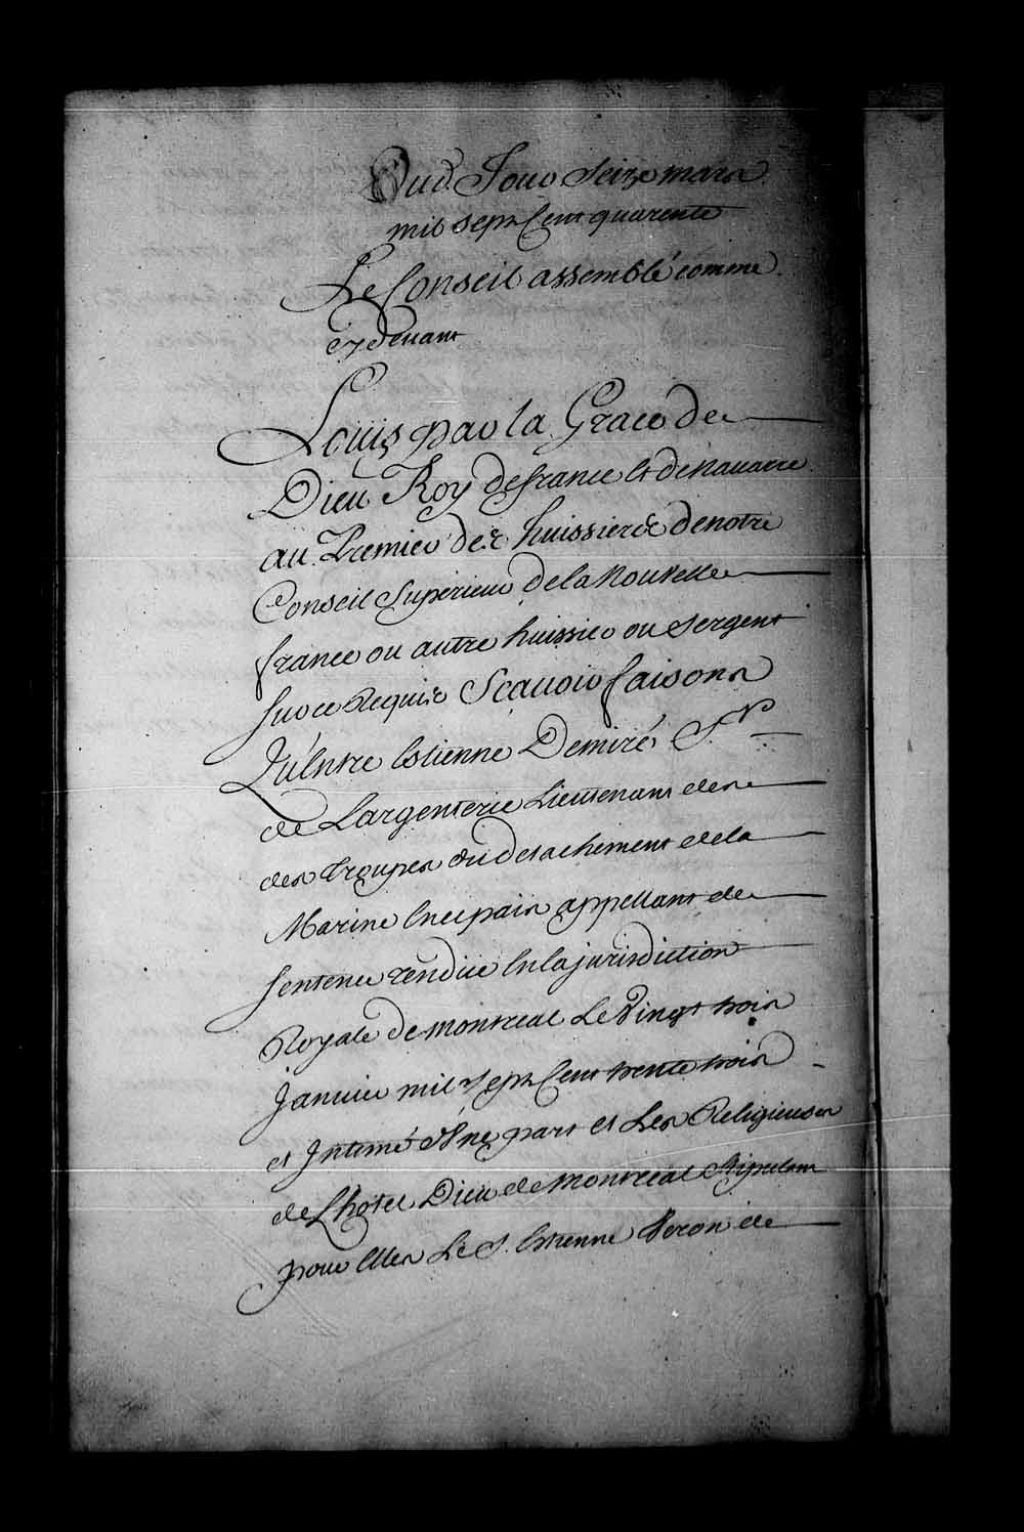 Dud. Jour Seize mars
mil sept Cent quarente
Le Conseil assemblé comme
cy devant
Louis par la Grace de
Dieu Roy de france et de Navarre
au Premier des huissiers de notre
Conseil Superieur de la Nouvelle
france ou autre huissier ou Sergent
sur ce Requis Scavoir faisons
Qu'Entre Estienne Demiré Sr
de Largenterie Lieutenant dans
des Troupes du detachement de la
Marine En ce païs appellant de
sentence rendüe En la jurisdiction
Royale de montreal Le Vingt trois
Janvier mil sept Cent trente trois
et Intimé d'Une part et Les Religieuses
de L'hotel Dieu de Montreal Stipulant
pour Elles Le S. Estienne Veron de